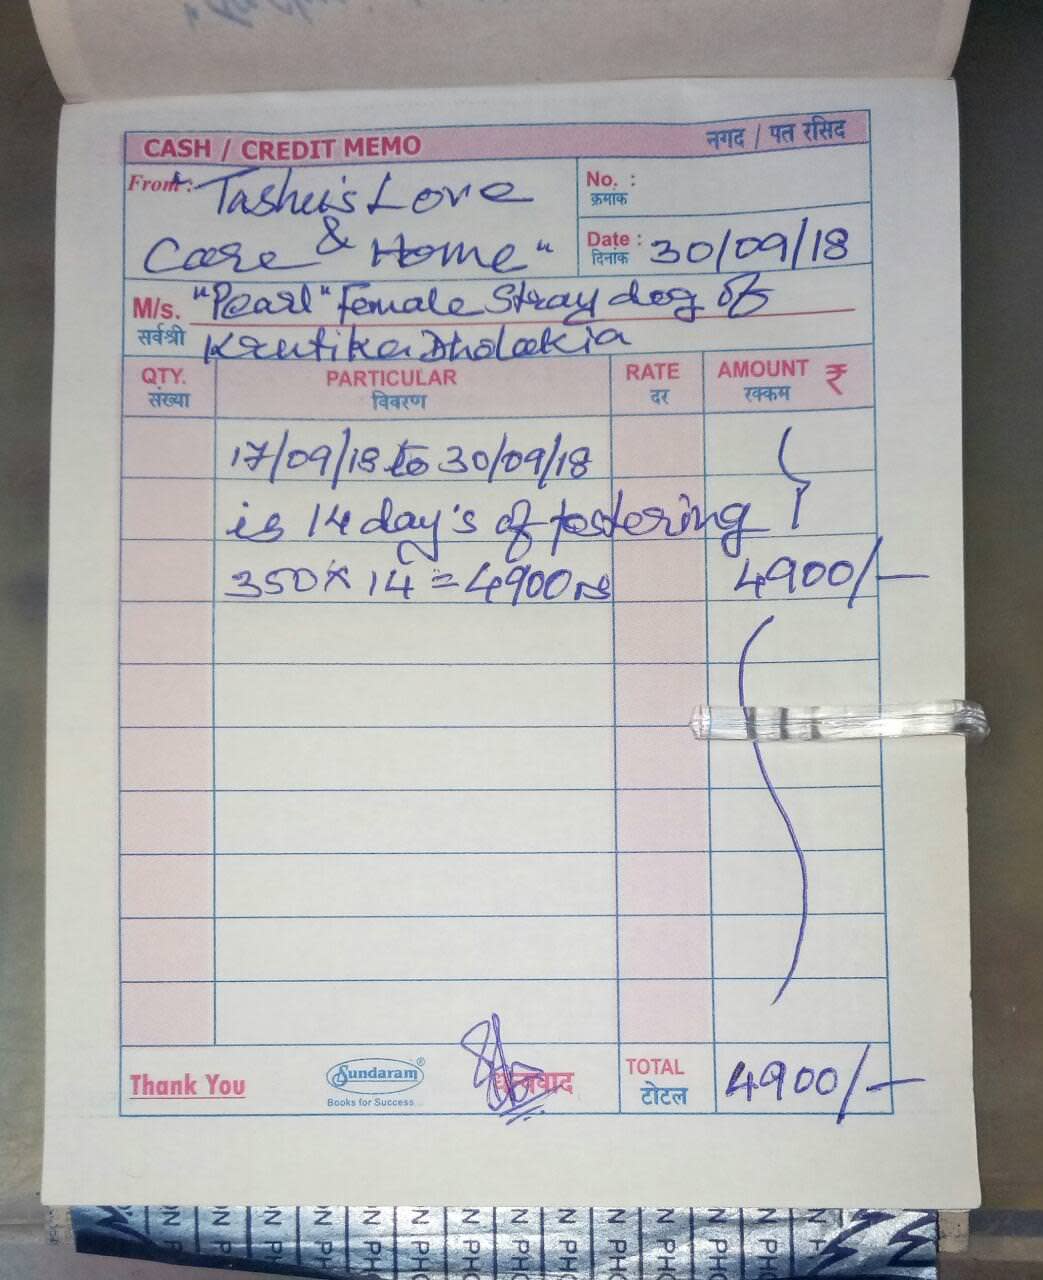 CASH / CREDIT MEMO नगद / पत रसिद
From: "Tashu's Love
Care & Home"
No. :
क्रमांक
Date : 30/09/18
दिनांक
M/s. "Pearl" Female Stray dog of
सर्वश्री Krutika Dholakia
QTY. PARTICULAR RATE AMOUNT ₹
संख्या विवरण दर रक्कम
17/09/18 to 30/09/18
is 14 day's of fostering
350 x 14 = 4900 rs 4900/-
Thank You Sundaram® धन्यवाद TOTAL 4900/-
Books for Success... टोटल